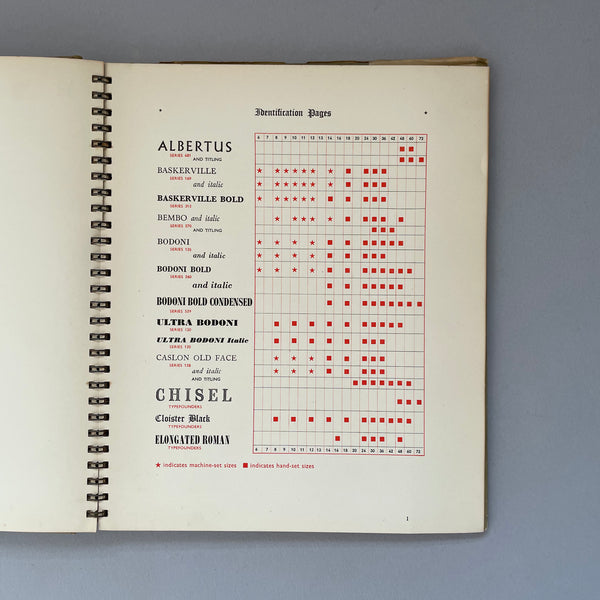 Identification Pages
6 7 8 9 10 11 12 13 14 16 18 20 24 30 36 42 48 60 72
ALBERTUS
SERIES 481 AND TITLING
BASKERVILLE
SERIES 169
and italic
BASKERVILLE BOLD
SERIES 312
BEMBO and italic
SERIES 270 AND TITLING
BODONI
SERIES 135
and italic
BODONI BOLD
SERIES 260
and italic
BODONI BOLD CONDENSED
SERIES 529
ULTRA BODONI
SERIES 120
ULTRA BODONI Italic
SERIES 120
CASLON OLD FACE
SERIES 128
and italic
AND TITLING
CHISEL
TYPEFOUNDERS
Cloister Black
TYPEFOUNDERS
ELONGATED ROMAN
TYPEFOUNDERS
6 7 8 9 10 11 12 13 14 16 18 20 24 30 36 42 48 60 72
★ indicates machine-set sizes ■ indicates hand-set sizes
1